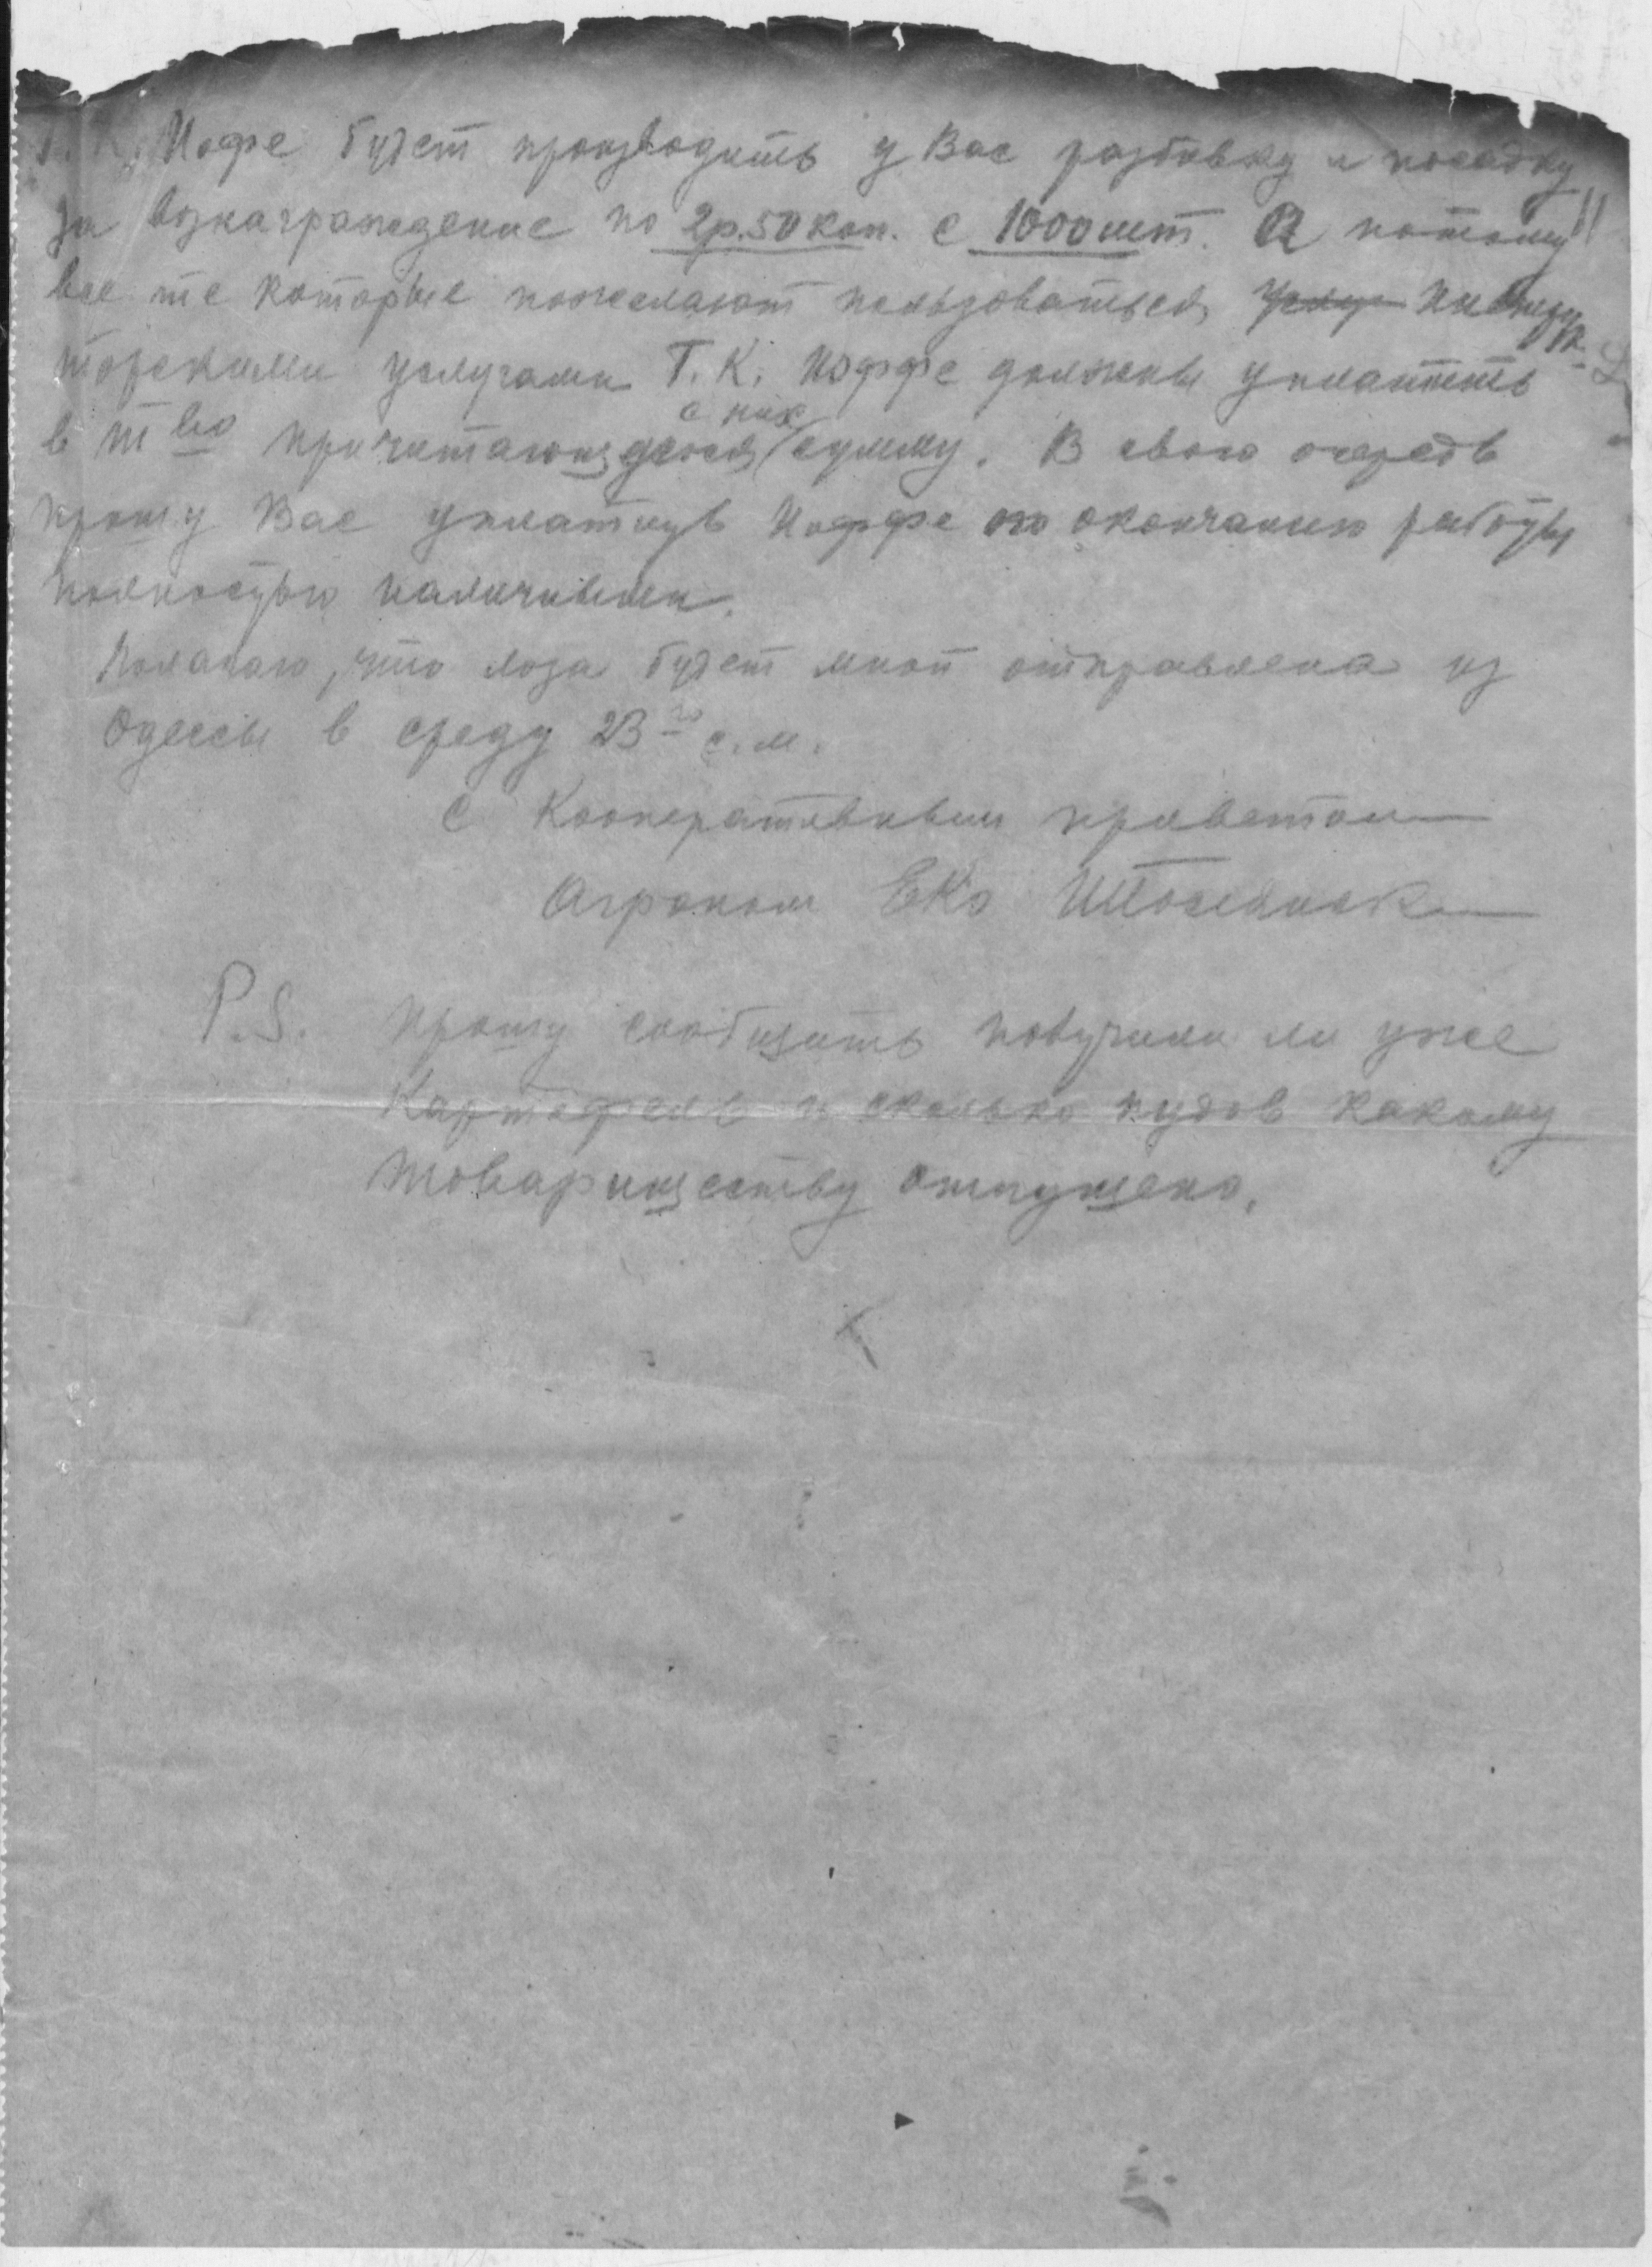 Т. К. Иофе будет производить у Вас разбивку и посадку
за вознаграждение по 2р.50 коп. с 1000 шт. А потому
все те которые пожелают пользоваться
торскими услугами Т. К. Иоффе должны уплатить
в т во причитающуюся с них сумму. В свою очередь
прошу Вас уплатить Иоффе по окончанию работы
полностью наличными.
Полагаю, что лоза будет мной отправлена из
Одессы в среду 23 го с.м.
С Кооперативным приветом
Агроном ЕКО
P.S. прошу сообщить получили ли уже
Картофель и сколько пудов какому
товариществу отпущено.